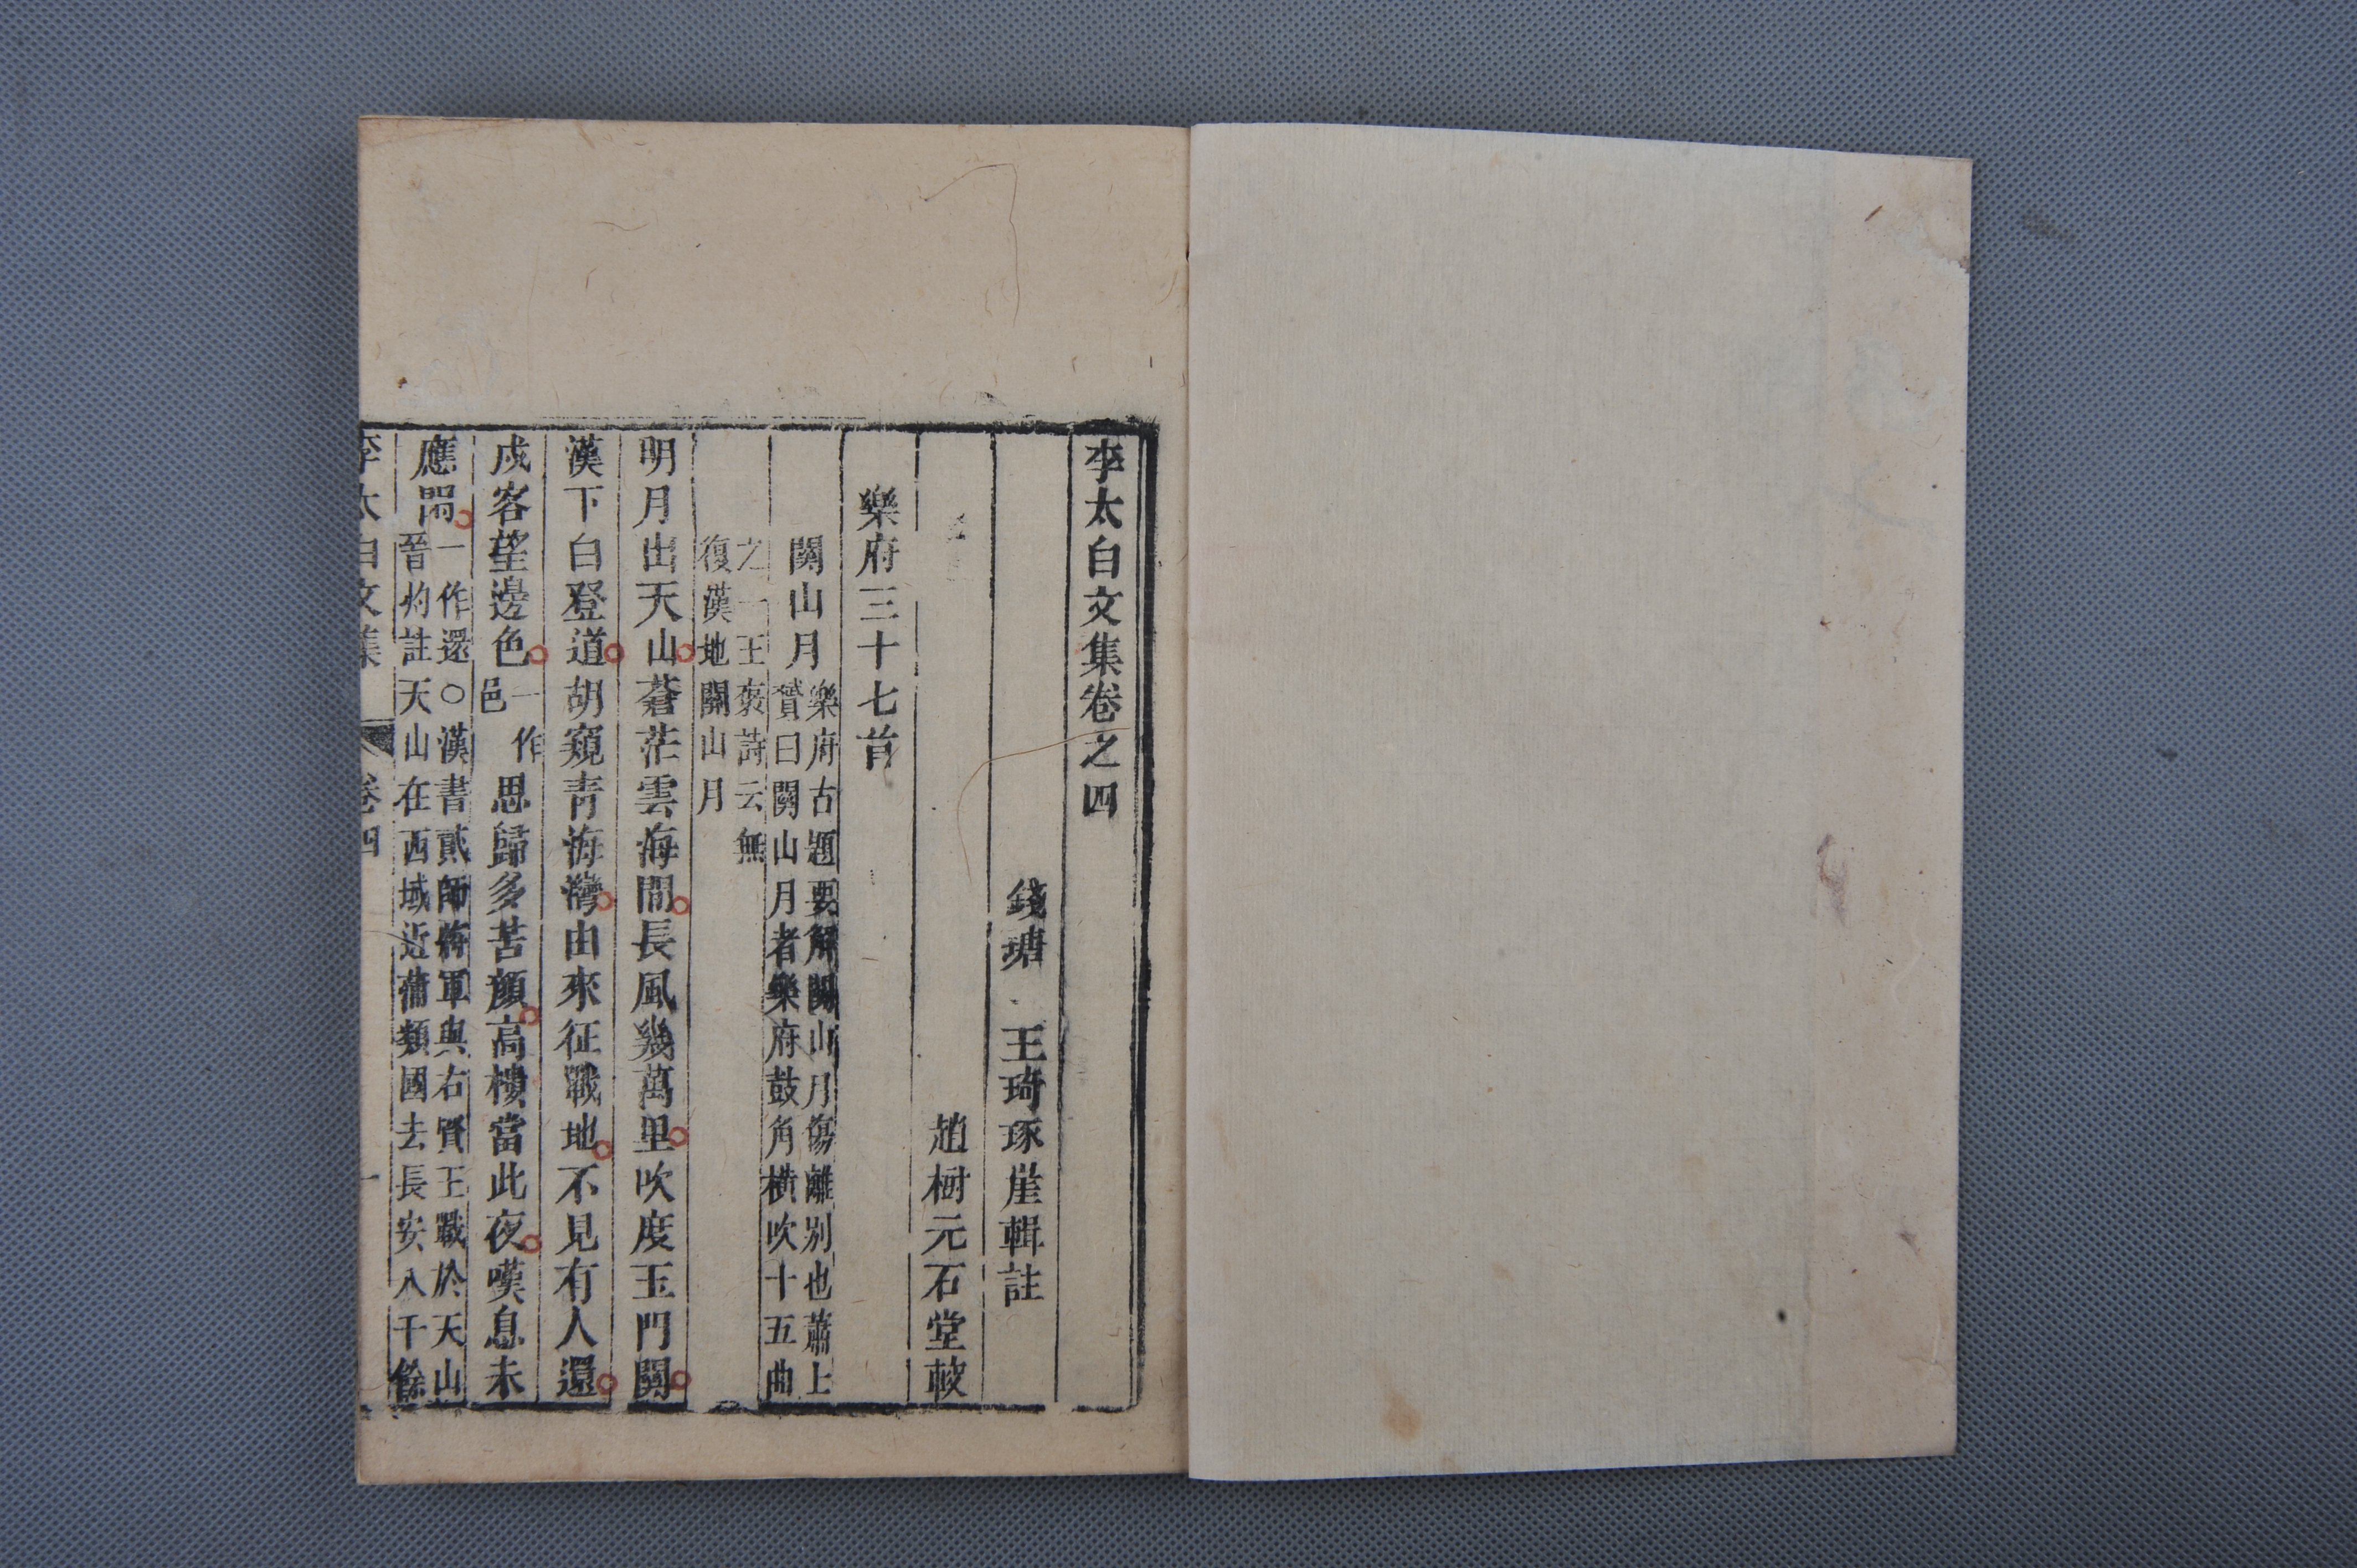 李太白文集卷之四
錢塘 王琦琢崖輯註
趙樹元石堂較
樂府三十七首
關山月 樂府古題要解關山月傷離別也蕭士
贇曰關山月者樂府鼓角橫吹十五曲
之一王褒詩云無
復漢地關山月
明月出天山蒼茫雲海間長風幾萬里吹度玉門關
漢下白登道胡窺青海灣由來征戰地不見有人還
戍客望邊色一作邑思歸多苦顏高樓當此夜嘆息未
應閒 一作還○漢書貳師將軍與右賢王戰於天山
晉灼註天山在西域近蒲類國去長安八千餘
李太白文集 卷四 一